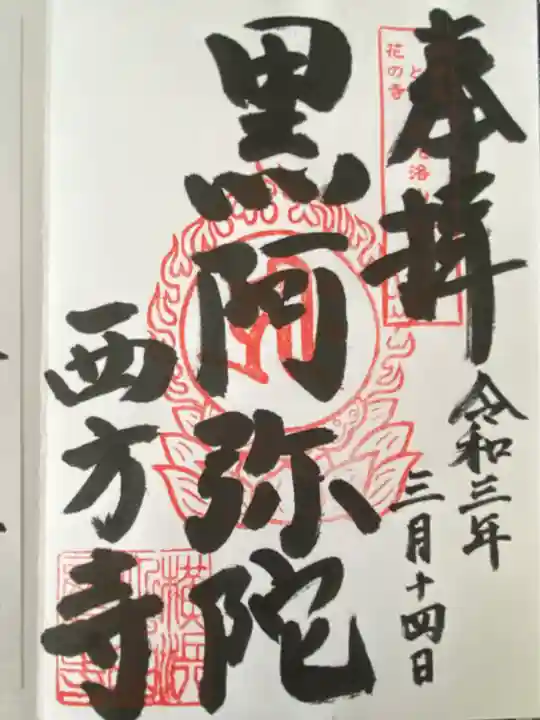 奉拝
令和三年
三月十四日
黒阿弥陀
西方寺
花の寺
横浜